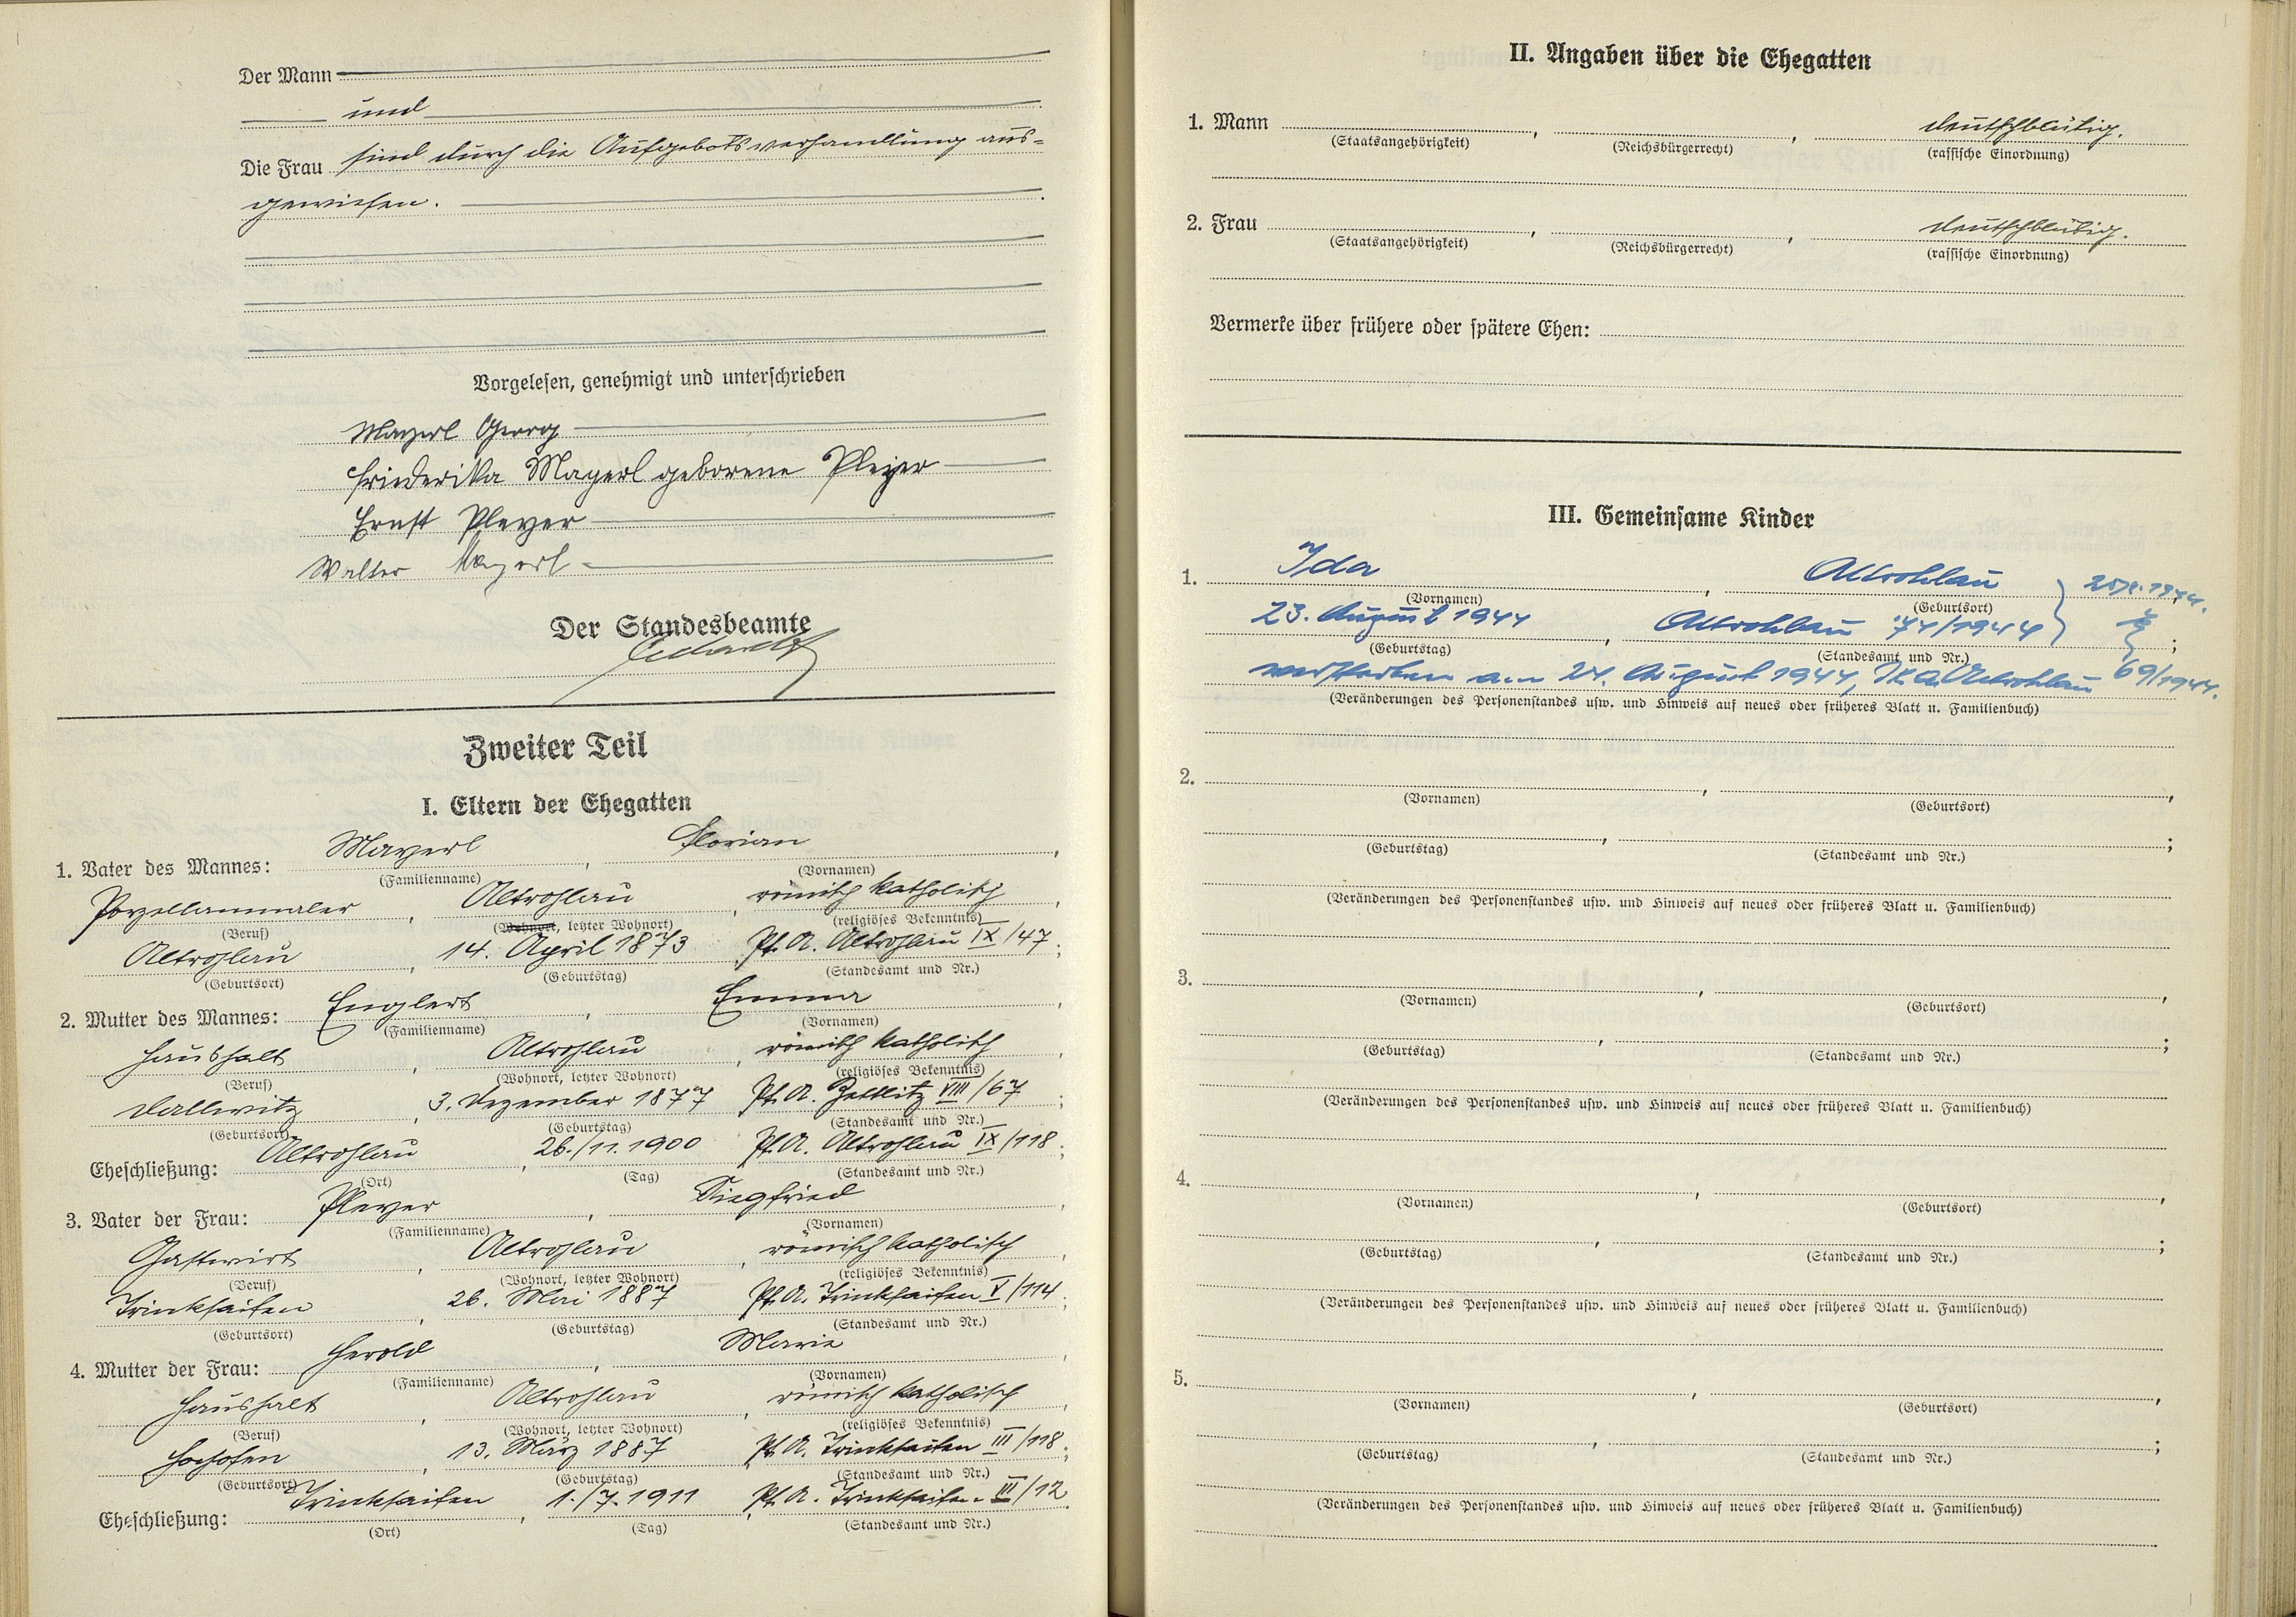 Der Mann
und
Die Frau sind durch die Aufgebotsverhandlung aus=
gewiesen.
Vorgelesen, genehmigt und unterschrieben
Mayerl Georg
Friederika Mayerl geborene Pleyer
Ernst Pleyer
Walter Mayerl
Der Standesbeamte
Zweiter Teil
I. Eltern der Ehegatten
1. Vater des Mannes: Mayerl, Florian,
(Familienname) (Vornamen)
Porzellanmaler, Altrohlau, römisch katholisch,
(Beruf) (Wohnort, letzter Wohnort) (religiöses Bekenntnis)
Altrohlau, 14. April 1873, Pf. A. Altrohlau IX/47;
(Geburtsort) (Geburtstag) (Standesamt und Nr.)
2. Mutter des Mannes: Englert, Emma,
(Familienname) (Vornamen)
Haushalt, Altrohlau, römisch katholisch,
(Beruf) (Wohnort, letzter Wohnort) (religiöses Bekenntnis)
Dallwitz, 3. Dezember 1877 Pf. A. Zettlitz VIII/67;
(Geburtsort) (Geburtstag) (Standesamt und Nr.)
Eheschließung: Altrohlau, 26./11.1900 Pf. A. Altrohlau IX/118;
(Ort) (Tag) (Standesamt und Nr.)
3. Vater der Frau: Pleyer, Siegfried,
(Familienname) (Vornamen)
Gastwirt, Altrohlau, römisch katholisch,
(Beruf) (Wohnort, letzter Wohnort) (religiöses Bekenntnis)
Trinksaifen, 26. Mai 1887 Pf. A. Trinksaifen V/114;
(Geburtsort) (Geburtstag) (Standesamt und Nr.)
4. Mutter der Frau: Herold, Marie,
(Familienname) (Vornamen)
Haushalt, Altrohlau, römisch katholisch,
(Beruf) (Wohnort, letzter Wohnort) (religiöses Bekenntnis)
Hochofen, 13. März 1887, Pf. A. Trinksaifen III/118;
(Geburtsort) (Geburtstag) (Standesamt und Nr.)
Eheschließung: Trinksaifen, 1./7.1911, Pf. A. Trinksaifen III/12
(Ort) (Tag) (Standesamt und Nr.)
II. Angaben über die Ehegatten
1. Mann , , deutschblütig.
(Staatsangehörigkeit) (Reichsbürgerrecht) (rassische Einordnung)
2. Frau , , deutschblütig.
(Staatsangehörigkeit) (Reichsbürgerrecht) (rassische Einordnung)
Vermerke über frühere oder spätere Ehen:
III. Gemeinsame Kinder
1. Ida, Altrohlau
(Vornamen) (Geburtsort)
23. August 1944, Altrohlau 74/1944;
(Geburtstag) (Standesamt und Nr.)
verstorben am 24. August 1944, Altrohlau 69/1944.
(Veränderungen des Personenstandes usw. und Hinweis auf neues oder früheres Blatt u. Familienbuch)
2. , ,
(Vornamen) (Geburtsort)
, ;
(Geburtstag) (Standesamt und Nr.)
(Veränderungen des Personenstandes usw. und Hinweis auf neues oder früheres Blatt u. Familienbuch)
3. , ,
(Vornamen) (Geburtsort)
, ;
(Geburtstag) (Standesamt und Nr.)
(Veränderungen des Personenstandes usw. und Hinweis auf neues oder früheres Blatt u. Familienbuch)
4. , ,
(Vornamen) (Geburtsort)
, ;
(Geburtstag) (Standesamt und Nr.)
(Veränderungen des Personenstandes usw. und Hinweis auf neues oder früheres Blatt u. Familienbuch)
5. , ,
(Vornamen) (Geburtsort)
, ;
(Geburtstag) (Standesamt und Nr.)
(Veränderungen des Personenstandes usw. und Hinweis auf neues oder früheres Blatt u. Familienbuch)